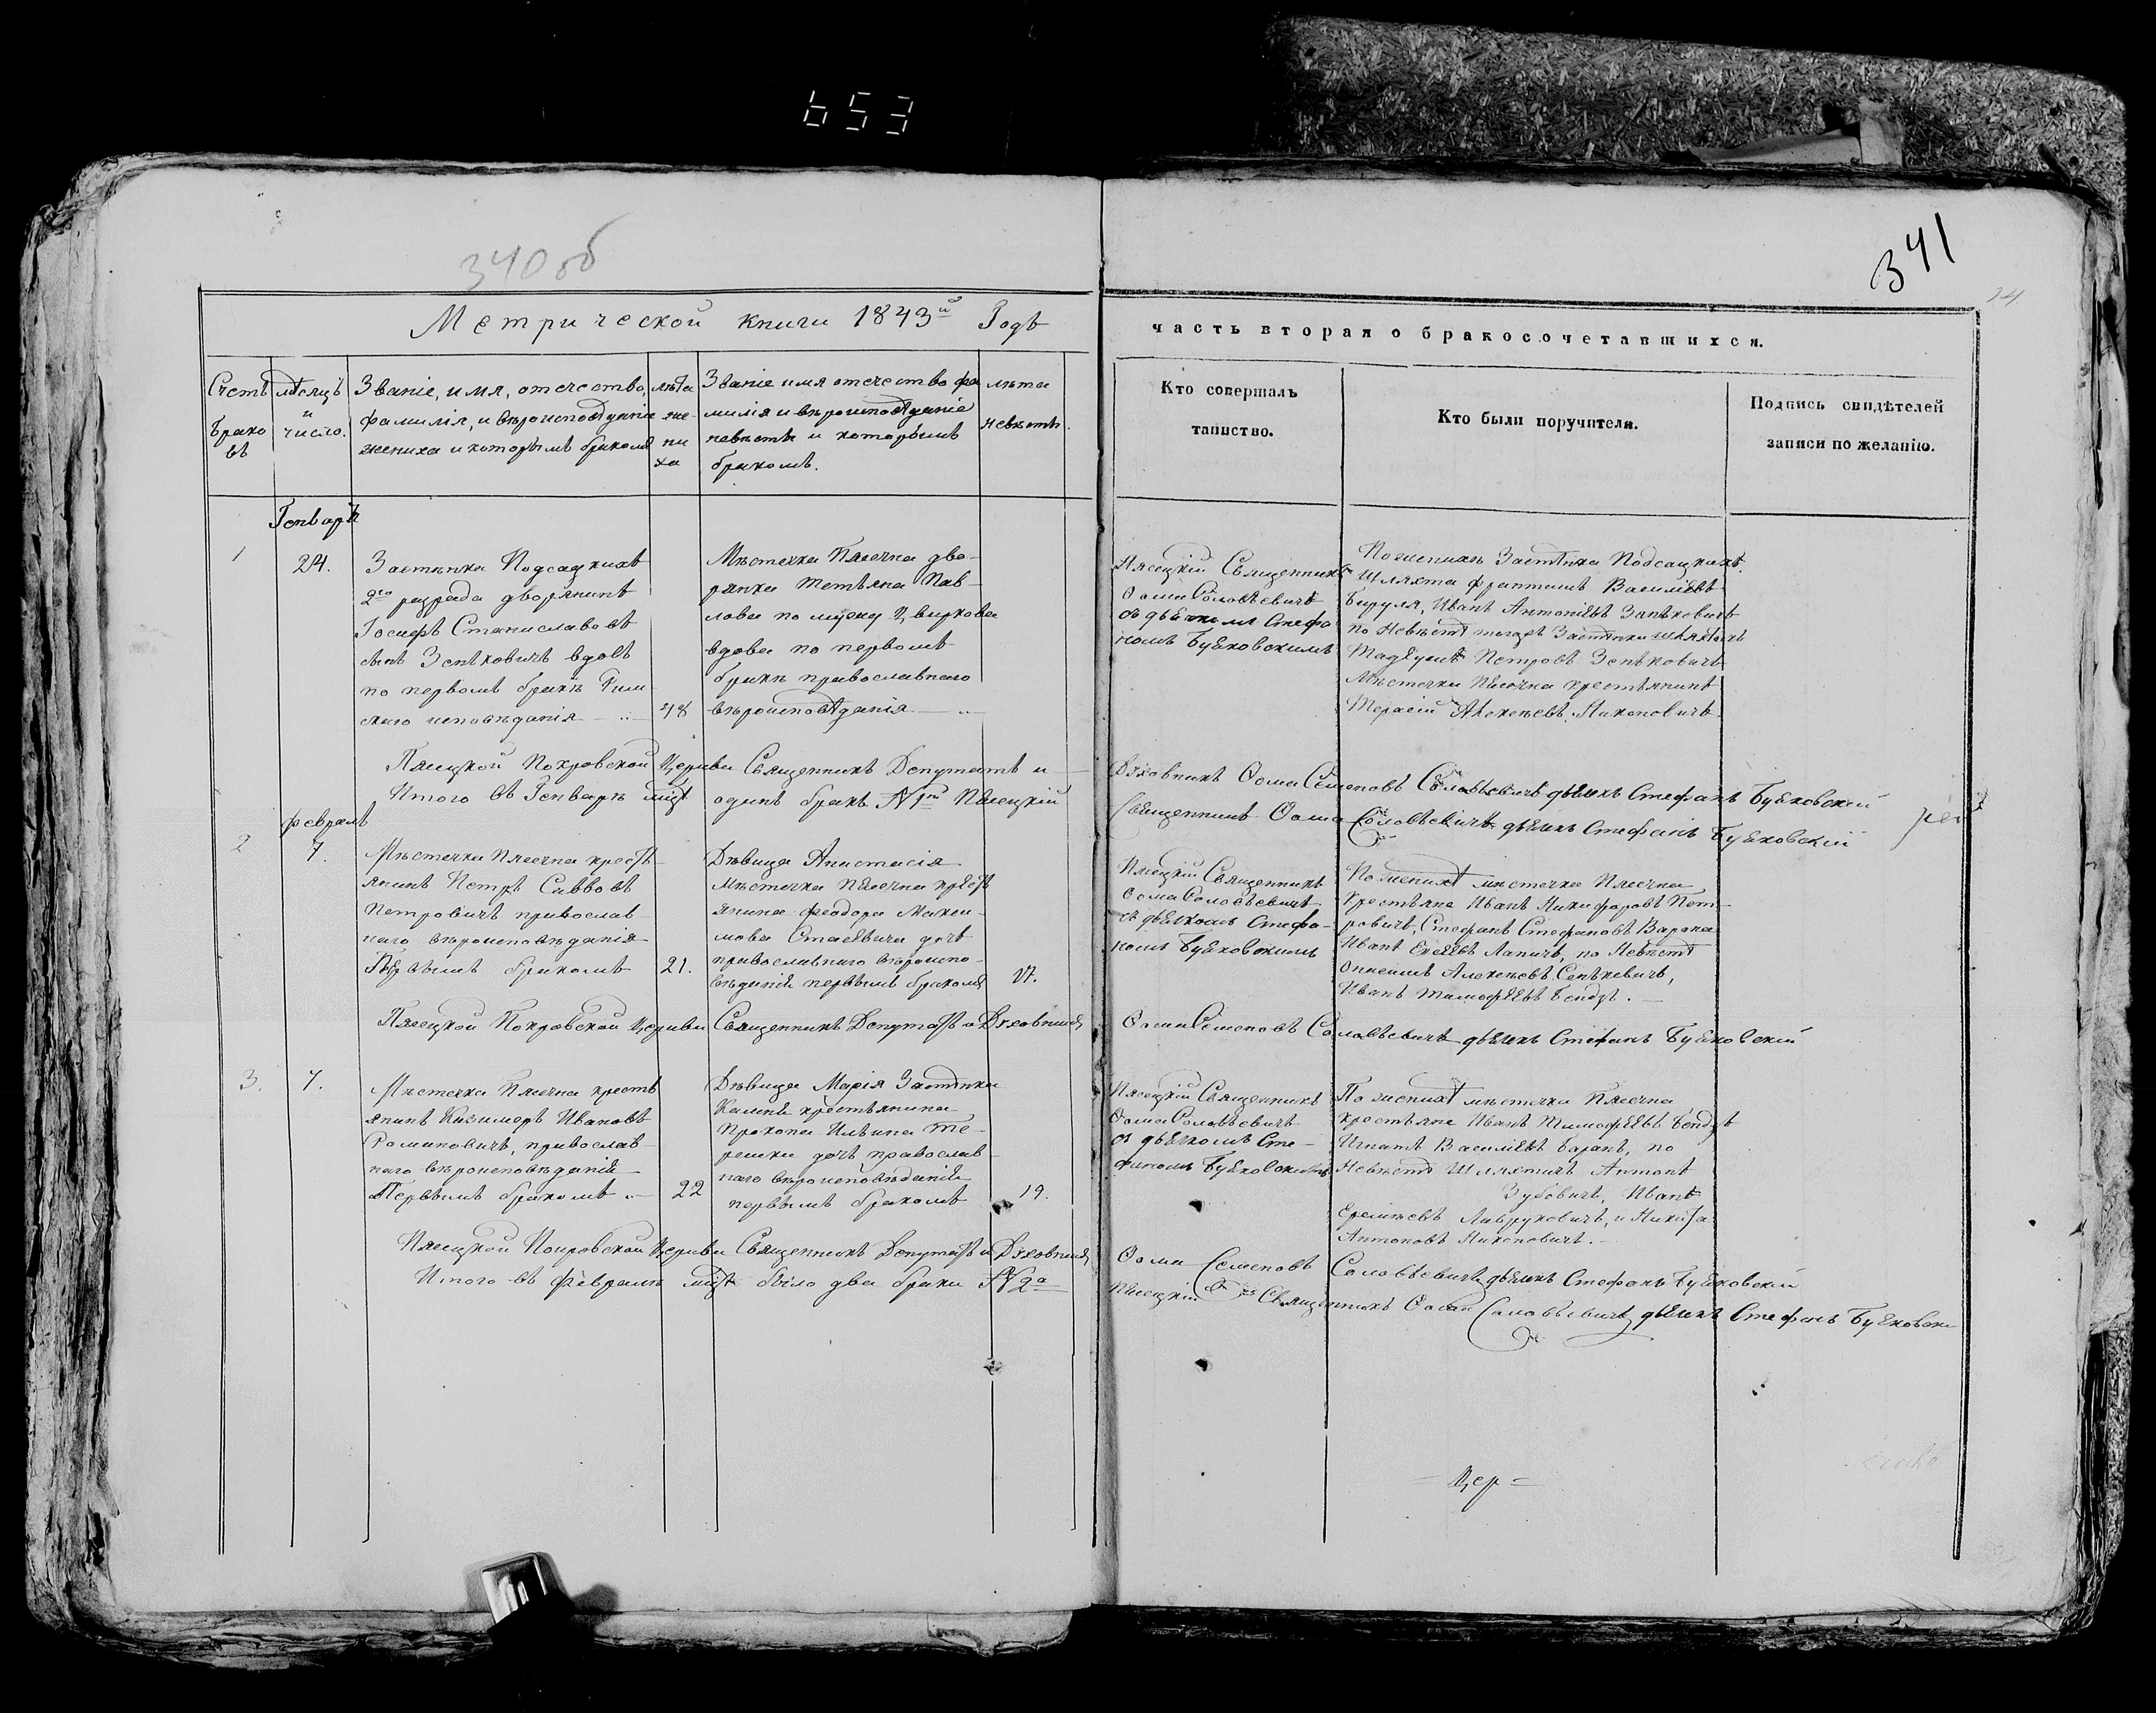 653
340 об
341
Метрической книги 1843й Годъ
часть вторая о бракосочетавшихся.
Счетъ
браковъ
мѣсяцъ
и
число.
Званіе, имя, отечество,
фамилія, и вѣроисповѣданіе
жениха и которымъ бракомъ
лѣта
же-
ни
ха
Званіе имя отечество фа
милія и вѣроисповѣданіе
невѣсты и которымъ
бракомъ.
лѣта
невѣсты.
Кто совершалъ
таинство.
Кто были поручители.
Подпись свидѣтелей
записи по желанію.
Генварь
1
24.
Застѣнка Подсадкихъ
2го разряда дворянинъ
Іосифъ Станиславовъ
сынъ Зенковичъ вдовъ
по первомъ бракѣ Рим-
скаго исповѣданія
48
Мѣстечка Пясечна дво-
рянка Татьяна Пав-
лова по мужу Цвиркова
вдова по первомъ
бракѣ православнаго
вѣроисповѣданія
Пясецкій Священникъ
Фома Соловьевичъ
съ дьячкомъ Стефа
номъ Буяковскимъ
По женихѣ Застѣнка Подсадкихъ
Шляхта Василіевъ
Бируля, Иванъ Антоніевъ Зенковичъ
по Невѣстѣ тогожъ Застѣнка шляхтичъ
Петровъ Зенковичъ
Мѣстечка Пясечна крестьянинъ
Алексѣевъ Никоновичъ
Пясецкой Покровской Церкви Священникъ Депутатъ и Духовникъ Фома Семеновъ Соловьевичъ дьячекъ Стефанъ Буяковскій
Итого въ Генварѣ мцѣ одинъ бракъ N 1й Пясецкій Священникъ Фома Соловьевичъ дьячекъ Стефанъ Буяковскій
февраль
2
7.
Мѣстечка Пясечна кресть-
янинъ Петръ Саввовъ
Петровичъ православ-
наго вѣроисповѣданія
Первымъ бракомъ
21.
Дѣвица Анастасія
мѣстечка Пясечна кресть
янина Феодора Макси-
мова Стасевича дочь
православнаго вѣроиспо-
вѣданія первымъ бракомъ
17.
Пясецкій Священникъ
Фома Соловьевичъ
съ дьячкомъ Стефа-
номъ Буяковскимъ
По женихѣ мѣстечка Пясечна
Крестьяне Иванъ Никифоровъ Пет-
ровичъ, Стефанъ Стефановъ
Иванъ Лапичъ, по Невѣстѣ
Алексѣевъ Сенкевичъ,
Иванъ Тимофѣевъ Бендзъ.
Пясецкой Покровской Церкви Священникъ Депутатъ и Духовникъ Фома Семеновъ Соловьевичъ дьячекъ Стефанъ Буяковскій
3.
7.
Мѣстечка Пясечна кресть
янинъ Казимеръ Ивановъ
Романовичъ, православ-
наго вѣроисповѣданія
Первымъ бракомъ
22
Дѣвица Марія Застѣнка
крестьянина
Прокопа Ильина Те-
решки дочь православ-
наго вѣроисповѣданія
первымъ бракомъ
19.
Пясецкій Священникъ
Фома Соловьевичъ
съ дьячкомъ Сте-
фаномъ Буяковскимъ
По женихѣ мѣстечка Пясечна
крестьяне Иванъ Тимофѣевъ Бендзъ
Игнатъ Василіевъ Баранъ, по
Невѣстѣ Шляхтичъ Антонъ
Зубовичъ, Иванъ
Лавруковичъ, и Никита
Антоновъ Никоновичъ.
Пясецкой Покровской Церкви Священникъ Депутатъ и Духовникъ Фома Семеновъ Соловьевичъ дьячекъ Стефанъ Буяковскій
Итого въ Февралѣ мцѣ было два брака N 2а Пясецкій Священникъ Фома Соловьевичъ дьячекъ Стефанъ Буяковскі
- Цер =